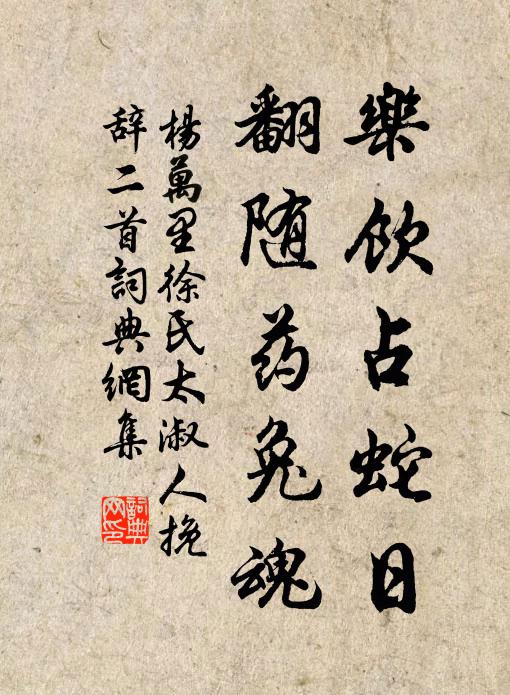 樂飲占蛇日
翻随药兔魂
楊萬里徐氏太淑人挽
辞二首詞典網集
詞典網印